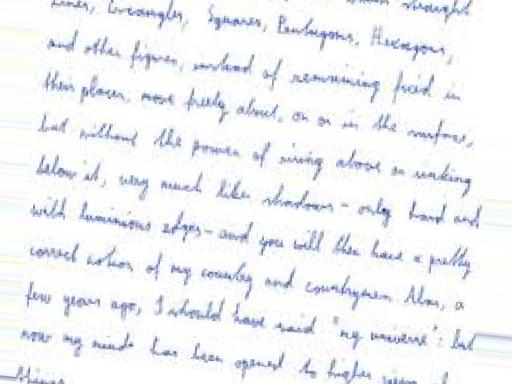 straight
Lines, Triangles, Squares, Pentagons, Hexagons,
and other figures, instead of remaining fixed in
their places, move freely about, on or in the surface,
but without the power of rising above or sinking
below it, very much like shadows - only hard and
with luminous edges - and you will then have a pretty
correct notion of my country and countrymen. Alas, a
few years ago, I should have said "my universe": but
now my mind has been opened to higher views
things